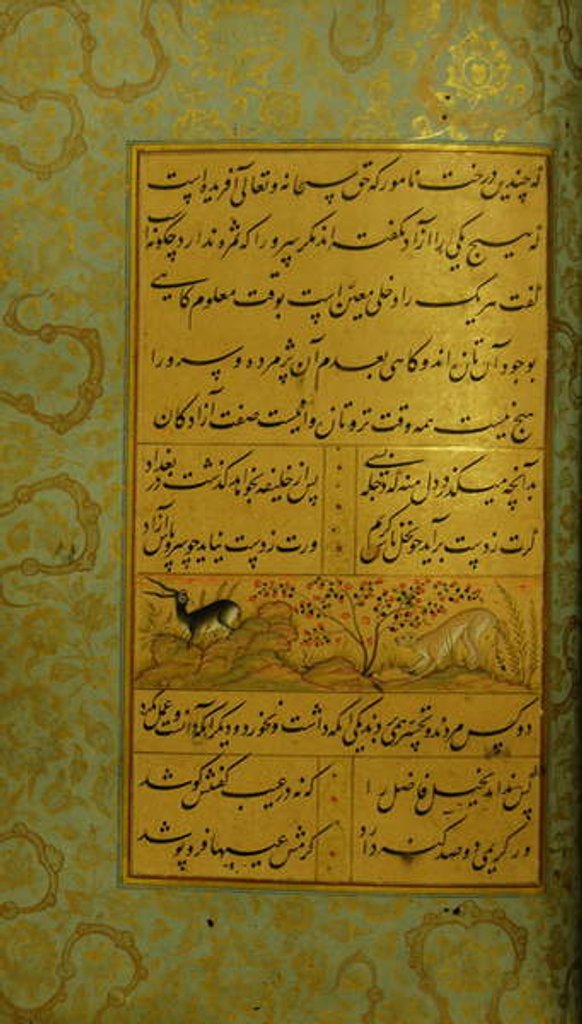 که چندین درخت نامور که حق سبحانه و تعالی آفریده است
که هیچ یکی را آزاد نگفته اند مگر سرو را که ثمره ندارد چگونه است
گفت هر یک را دخلی معین است بوقت معلوم گاهی
بوجود آن تازه اند و گاهی بعدم آن پژمرده و سرو را
هیچ نیست همه وقت تر و تازه و اینست صفت آزادگان
بدانچه میگذرد دل منه که دجله بسی
پس از خلیفه بخواهد گذشت در بغداد
گرت ز دست برآید چو نخل باش کریم
ورت ز دست نیاید چو سرو باش آزاد
دو کس مردند و تحسر بردند یکی آنکه داشت و نخورد و دیگر آنکه دانست و عمل نکرد
کس نداند بخیل فاضل را
که نه در عیب گفتنش کوشد
ور کریمی دو صد گنه دارد
کرمش عیبها فرو پوشد